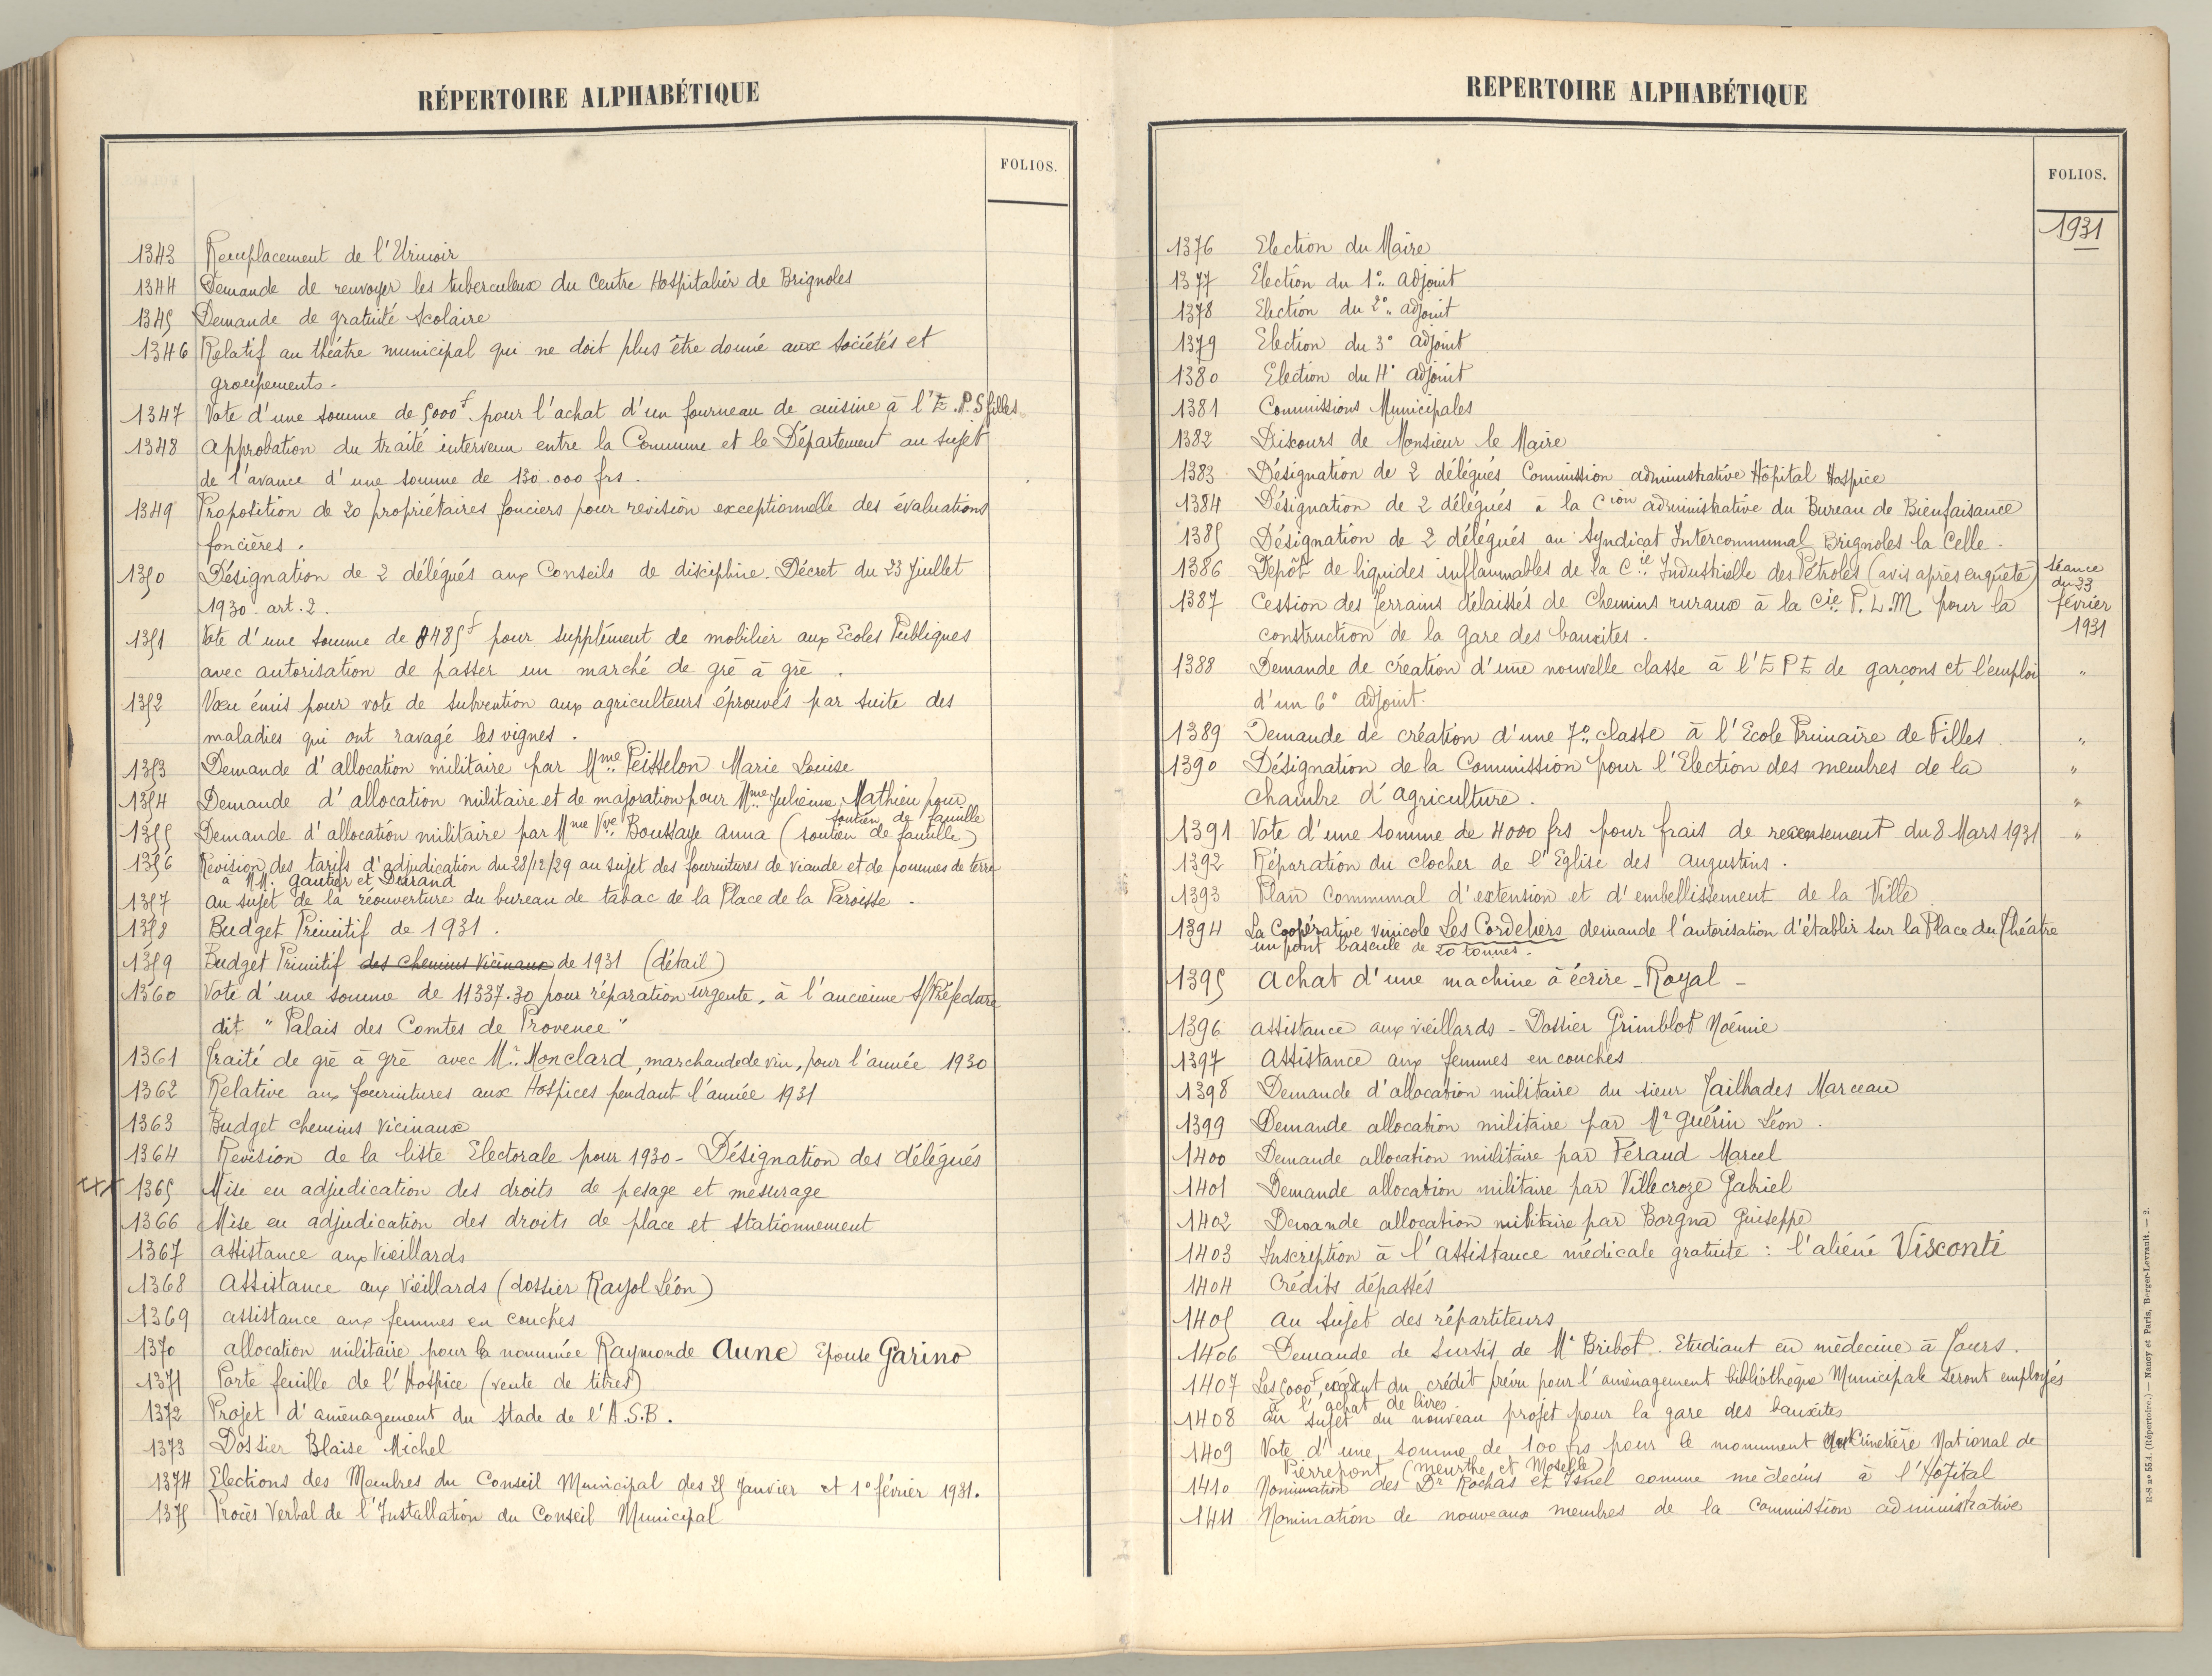 RÉPERTOIRE ALPHABÉTIQUE
FOLIOS.
1343 Remplacement de l'Urinoir
1344 Demande de renvoyer les tuberculeux du Centre Hospitalier de Brignoles
1345 Demande de gratuité scolaire
1346 Relatif au théâtre municipal qui ne doit plus être donné aux sociétés et
groupements.
1347 Vote d'une somme de 5000f pour l'achat d'un fourneau de cuisine à l'E.P.S filles
1348 Approbation du traité intervenu entre la Commune et le Département au sujet
de l'avance d'une somme de 130.000 frs.
1349 Proposition de 20 propriétaires fonciers pour revision exceptionnelle des évaluations
foncières.
1350 Désignation de 2 délégués aux Conseils de discipline. Décret du 23 Juillet
1930 - art. 2.
1351 Vote d'une somme de 8485f pour supplément de mobilier aux Ecoles Publiques
avec autorisation de passer un marché de gré à gré.
1352 Vœu émis pour vote de subvention aux agriculteurs éprouvés par suite des
maladies qui ont ravagé les vignes.
1353 Demande d'allocation militaire par Mme Peisselon Marie Louise
1354 Demande d'allocation militaire et de majoration pour Mme Julienne Mathieu pour
soutien de famille
1355 Demande d'allocation militaire par Mme Vve Boussaye Anna (soutien de famille)
1356 Revision des tarifs d'adjudication du 28/12/29 au sujet des fournitures de viande et de pommes de terre
à MM. Gautier et Durand
1357 au sujet de la réouverture du bureau de tabac de la Place de la Paroisse.
1358 Budget Primitif de 1931.
1359 Budget Primitif des chemins Vicinaux de 1931 (détail)
1360 Vote d'une somme de 11337.30 pour réparation urgente, à l'ancienne S/Préfecture
dit "Palais des Comtes de Provence"
1361 Traité de gré à gré avec Mr. Monclard, marchand de vin, pour l'année 1930
1362 Relative aux fournitures aux Hospices pendant l'année 1931
1363 Budget chemins Vicinaux
1364 Revision de la liste Electorale pour 1930 - Désignation des délégués
xxx 1365 Mise en adjudication des droits de pesage et mesurage
1366 Mise en adjudication des droits de place et stationnement
1367 assistance aux Vieillards
1368 Assistance aux Vieillards (dossier Rayol Léon)
1369 assistance aux femmes en couches
1370 allocation militaire pour la nommée Raymonde Aune Epouse Garino
1371 Porte feuille de l'Hospice (vente de titres)
1372 Projet d'aménagement du Stade de l'A.S.B.
1373 Dossier Blaise Michel
1374 Elections des Membres du Conseil Municipal des 25 Janvier et 1° février 1931.
1375 Procès Verbal de l'Installation du Conseil Municipal
REPERTOIRE ALPHABÉTIQUE
FOLIOS.
1931
1376 Election du Maire
1377 Election du 1° adjoint
1378 Election du 2° adjoint
1379 Election du 3° adjoint
1380 Election du 4° adjoint
1381 Commissions Municipales
1382 Discours de Monsieur le Maire
1383 Désignation de 2 délégués Commission administrative Hôpital Hospice
1384 Désignation de 2 délégués à la Cion administrative du Bureau de Bienfaisance
1385 Désignation de 2 délégués au Syndicat Intercommunal Brignoles la Celle.
1386 Dépôt de liquides inflammables de la Cie Industrielle des Pétroles (avis après enquête) séance
du 23
1387 Cession des terrains délaissés de Chemins ruraux à la Cie P.L.M. pour la février
construction de la gare des bauxites. 1931
1388 Demande de création d'une nouvelle classe à l'E P E de garçons et l'emploi "
d'un 6° adjoint.
1389 Demande de création d'une 7° classe à l'Ecole Primaire de Filles "
1390 Désignation de la Commission pour l'Election des membres de la "
Chambre d'Agriculture. "
1391 Vote d'une somme de 4000 frs pour frais de recensement du 8 Mars 1931 "
1392 Réparation du clocher de l'Eglise des Augustins.
1393 Plan Communal d'extension et d'embellissement de la Ville
1394 La Coopérative vinicole Les Cordeliers demande l'autorisation d'établir sur la Place du Théâtre
un pont bascule de 20 tonnes.
1395 Achat d'une machine à écrire - Royal -
1396 assistance aux vieillards - Dossier Grimblot Noémie
1397 Assistance aux femmes en couches
1398 Demande d'allocation militaire du sieur Jailhades Marceau
1399 Demande allocation militaire par Mr Guérin Léon.
1400 Demande allocation militaire par Féraud Marcel
1401 Demande allocation militaire par Villecroze Gabriel
1402 Demande allocation militaire par Borgna Guiseppe
1403 Inscription à l'Assistance médicale gratuite : l'aliéné Visconti
1404 Crédits dépassés
1405 au sujet des répartiteurs
1406 Demande de sursis de Mr Bribot. Etudiant en médecine à Tours.
1407 Les 5000f, excédent du crédit prévu pour l'aménagement bibliothèque Municipale seront employés
à l'achat de livres
1408 au sujet du nouveau projet pour la gare des bauxites
1409 Vote d'une somme de 100 frs pour le monument Cimetière National de
Pierrepont (Meurthe et Moselle)
1410 Nomination des Dr Rochas et Isnel comme médecins à l'Hôpital
1411 Nomination de nouveaux membres de la Commission administrative
R-S n° 554. (Répertoire.) — Nancy et Paris, Berger-Levrault. — 2.